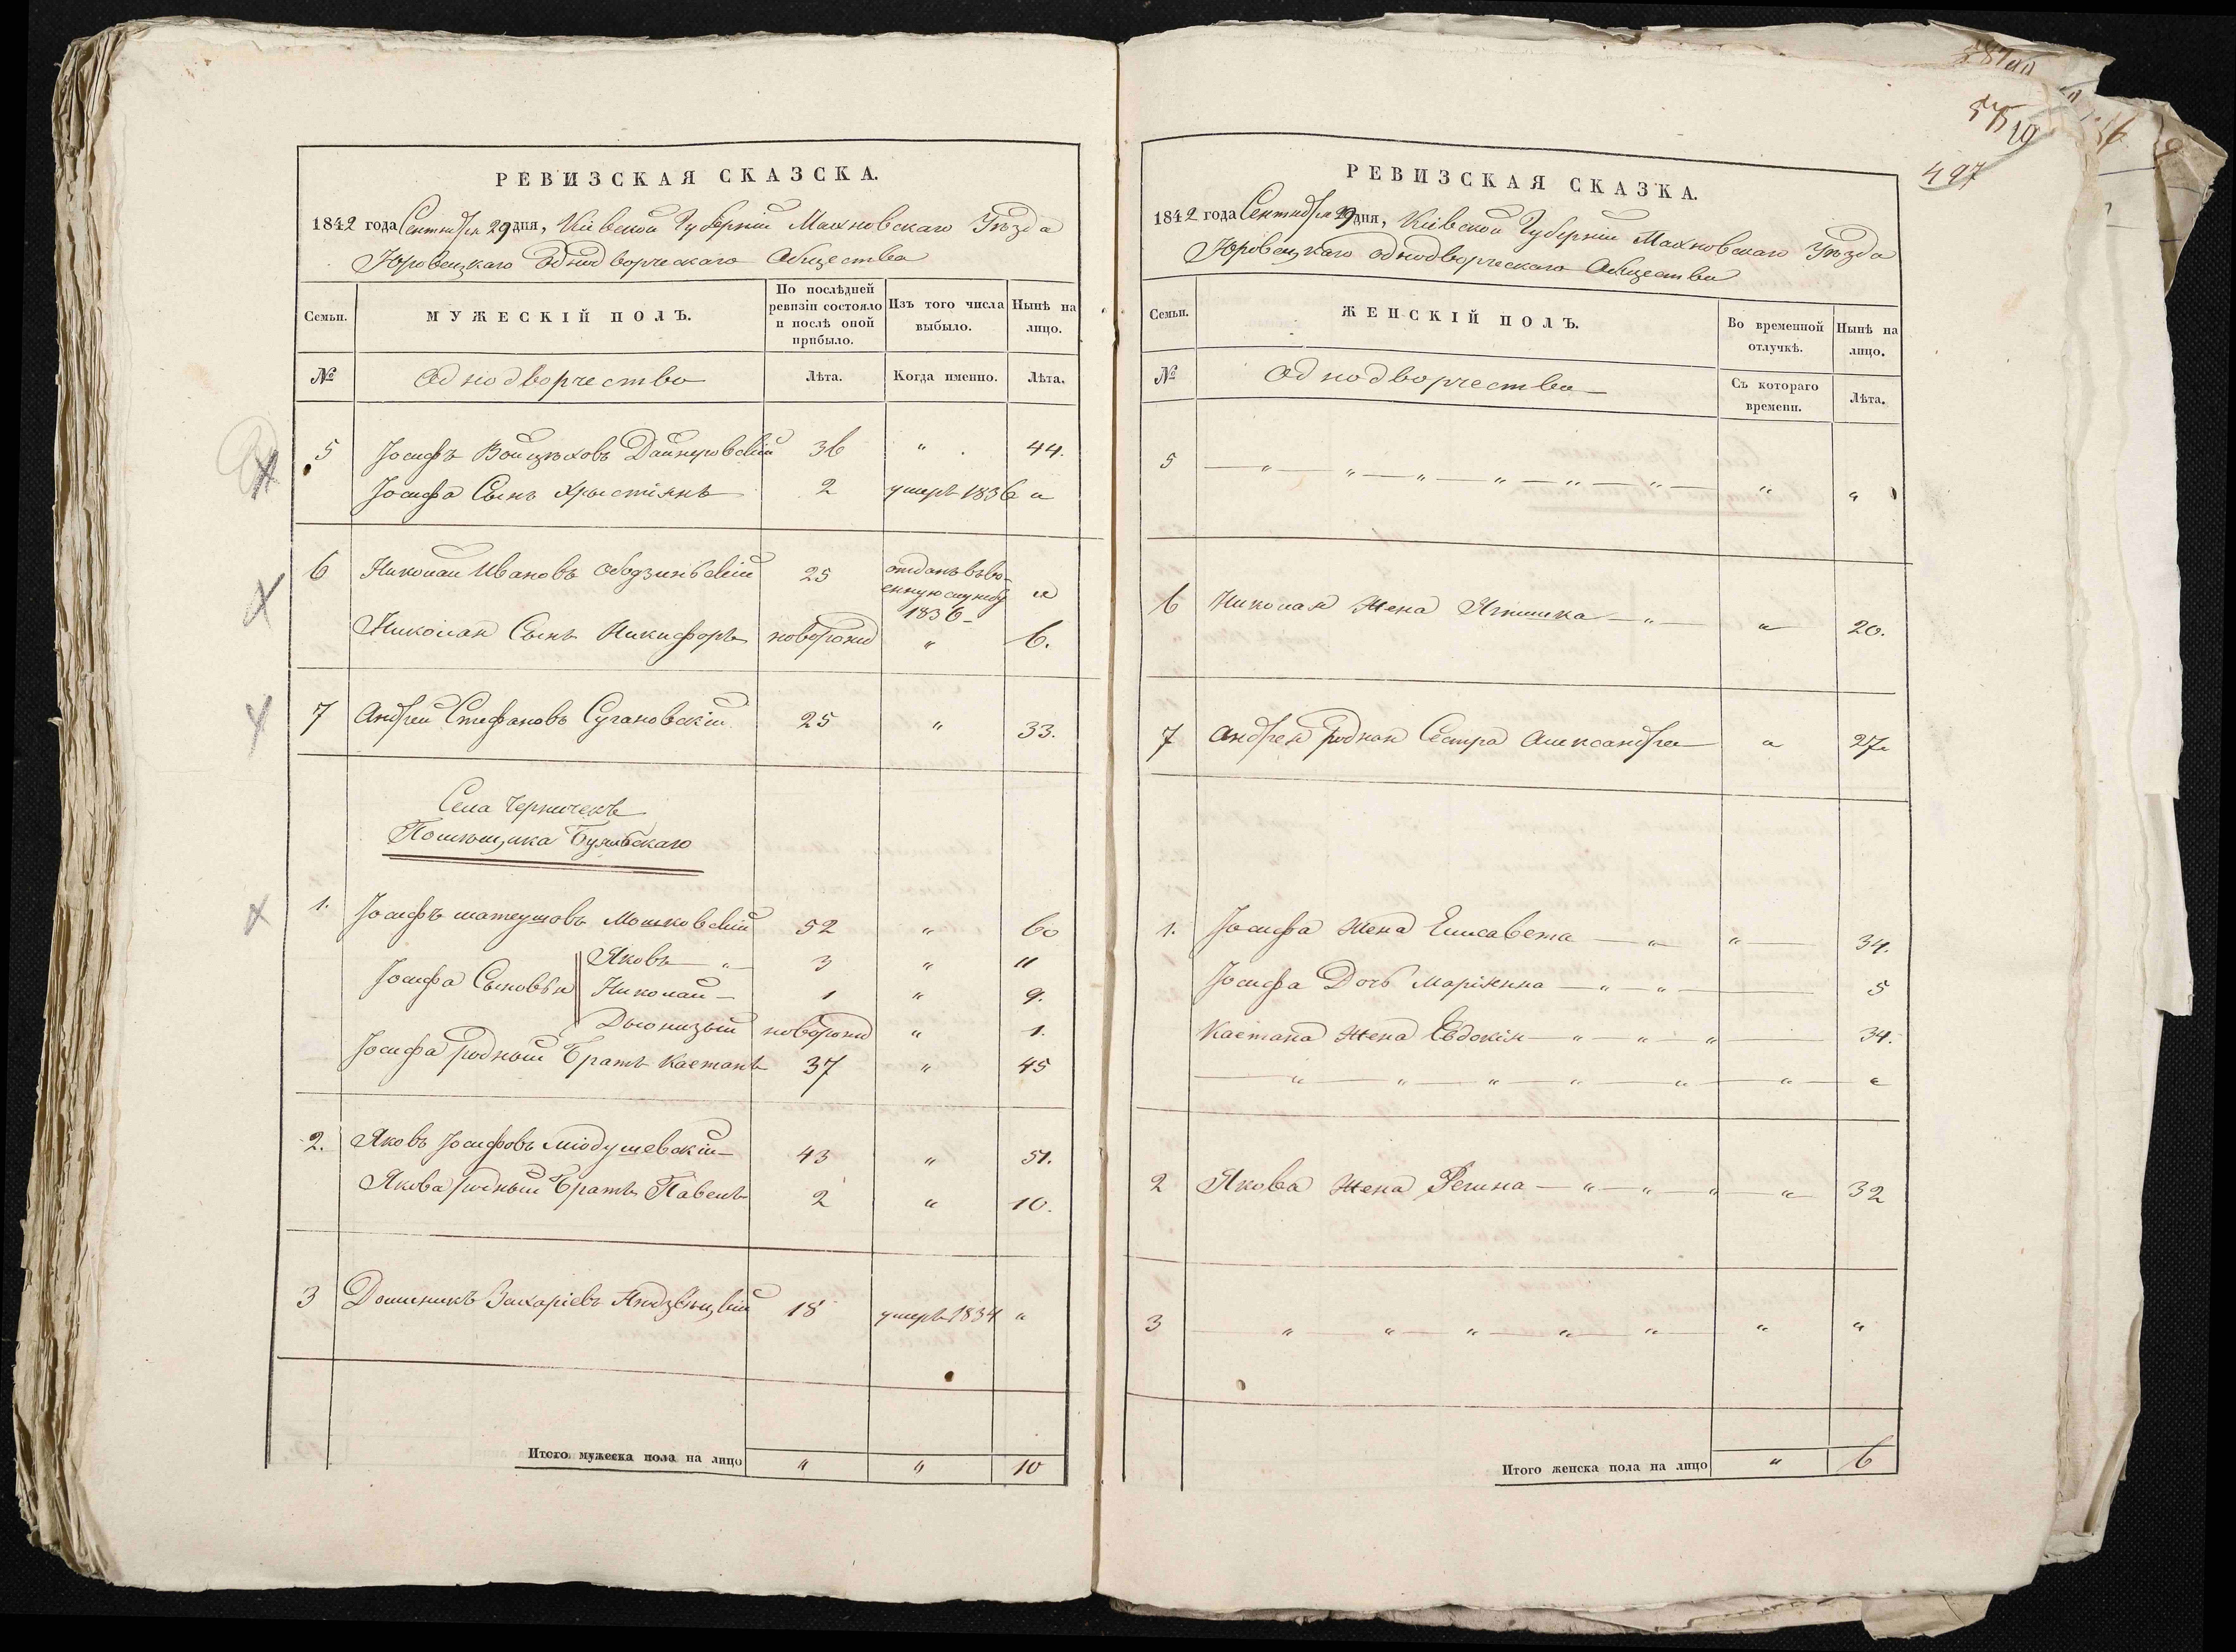 РЕВИЗСКАЯ СКАЗСКА.
1842 года Сентября 29 дня, Кіевской Губерніи Махновскаго Уѣзда
Юровецкаго Однодворческаго Общества
Семьи.
МУЖЕСКІЙ ПОЛЪ.
По послѣдней ревизіи состояло и послѣ оной прибыло.
Изъ того числа выбыло.
Нынѣ на лицо.
№
Однодворчество
Лѣта.
Когда именно.
Лѣта.
5 Іосифъ Войцѣховъ 36 " 44.
Іосифа Сынъ Хрыстіянъ 2 умеръ 1836 "
6 Николай Ивановъ 25 отданъ въ во-
енную службу "
1836 -
Николая Сынъ Никифоръ новорожд " 6.
7 Андрей Стефановъ Сугановскій 25 " 33.
Села Черничекъ
Помѣщика
1. Іосифъ Матеушовъ Мошковскій 52 " 60
Яковъ " 3 " 11
Іосифа Сыновья Николай - 1 " 9.
Дыонизый новорожд " 1.
Іосифа родный Братъ Каетанъ 37 " 45
2. Яковъ Іосифовъ Міодушевскій - 43 " 51.
Якова родный Братъ Павелъ 2 " 10.
3 Доминикъ Захаріевъ 18 умеръ 1834 "
Итого мужеска пола на лицо " " 10
497
РЕВИЗСКАЯ СКАЗКА.
1842 года Сентября 29 дня, Кіевской Губерніи Махновскаго Уѣзда
Юровецкаго однодворческаго Общества
Семьи.
ЖЕНСКІЙ ПОЛЪ.
Во временной отлучкѣ.
Нынѣ на лицо.
№
Однодворчества
Съ котораго времени.
Лѣта.
5 — " — " — " — " — " — " "
6 Николая Жена — " — " 20.
7 Андрея родная Сестра Александра " 27.
1. Іосифа Жена Елисавета — " — " — 34.
Іосифа Дочь Маріянна — " — " — 5
Каетана Жена Евдокія — " — " — " — 34.
— " — " — " — " — " — " — "
2 Якова Жена Регина — " — " — " — " — 32
3 — " — " — " — " — " — " "
Итого женска пола на лицо " 6